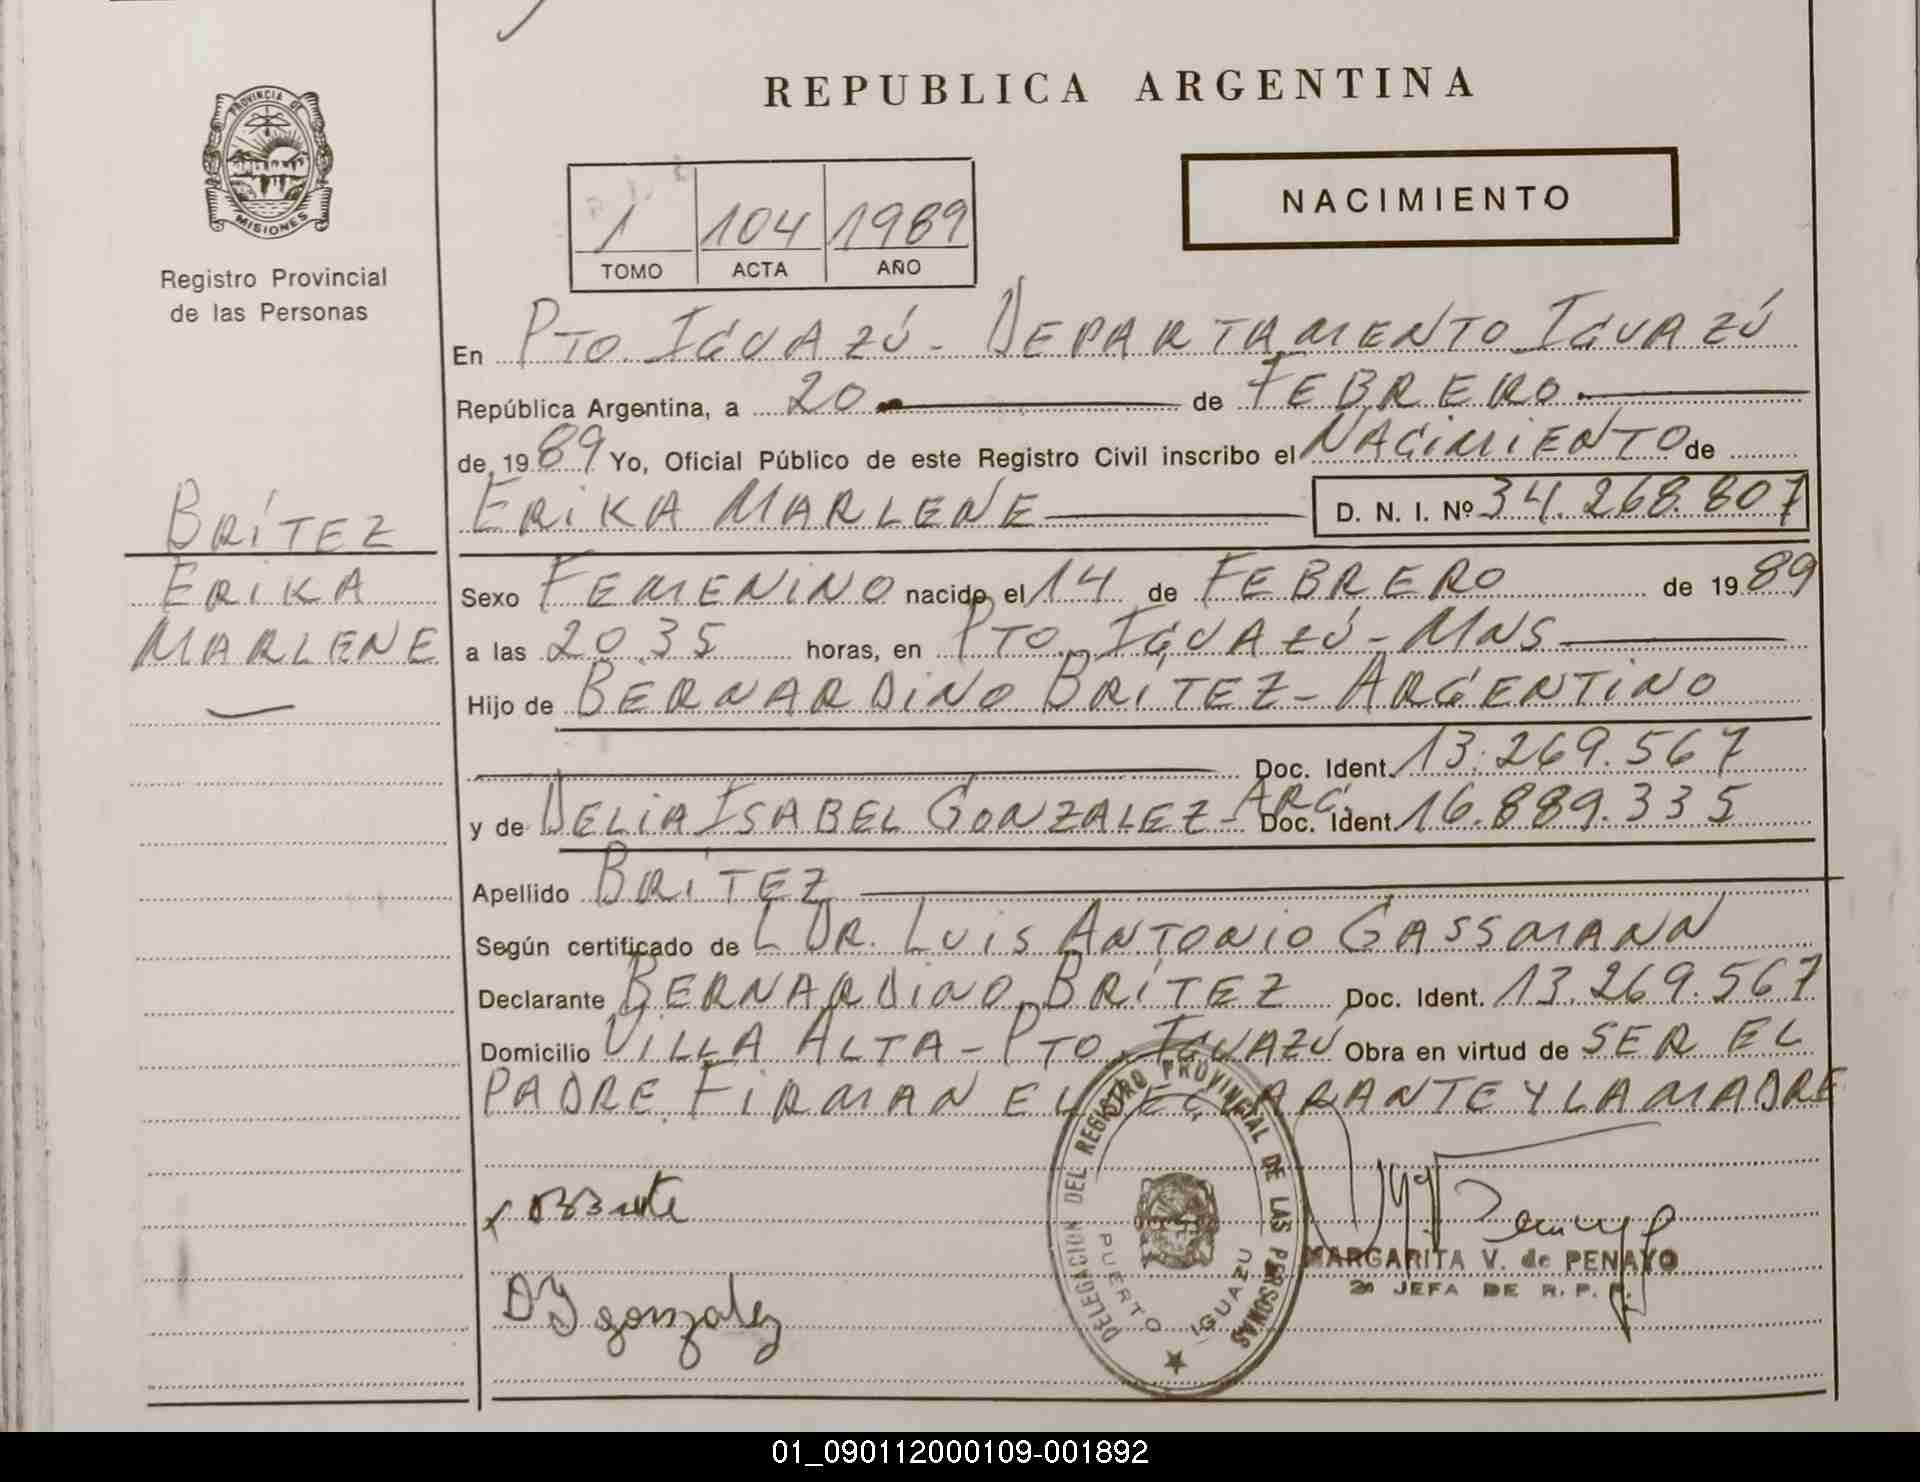 REPUBLICA ARGENTINA
PROVINCIA DE MISIONES
Registro Provincial
de las Personas
1 104 1989
TOMO ACTA AÑO
NACIMIENTO
En PTO. IGUAZÚ - DEPARTAMENTO IGUAZÚ
República Argentina, a 20 de FEBRERO
de 1989 Yo, Oficial Público de este Registro Civil inscribo el NACIMIENTO de
ERIKA MARLENE D. N. I. Nº 34.268.807
BRÍTEZ
ERIKA
MARLENE
Sexo FEMENINO nacido el 14 de FEBRERO de 1989
a las 20.35 horas, en PTO. IGUAZÚ - MNS
Hijo de BERNARDINO BRÍTEZ - ARGENTINO
Doc. Ident. 13.269.567
y de DELIA ISABEL GONZALEZ - ARG. Doc. Ident. 16.889.335
Apellido BRÍTEZ
Según certificado de L DR. LUIS ANTONIO GASSMANN
Declarante BERNARDINO BRÍTEZ Doc. Ident. 13.269.567
Domicilio VILLA ALTA - PTO. IGUAZÚ Obra en virtud de SER EL
PADRE FIRMAN EL DECLARANTE Y LA MADRE
DELEGACION DEL REGISTRO PROVINCIAL DE LAS PERSONAS
PUERTO IGUAZU
MARGARITA V. de PENAYO
2ª JEFA DE R. P. P.
D I gonzalez
01_090112000109-001892